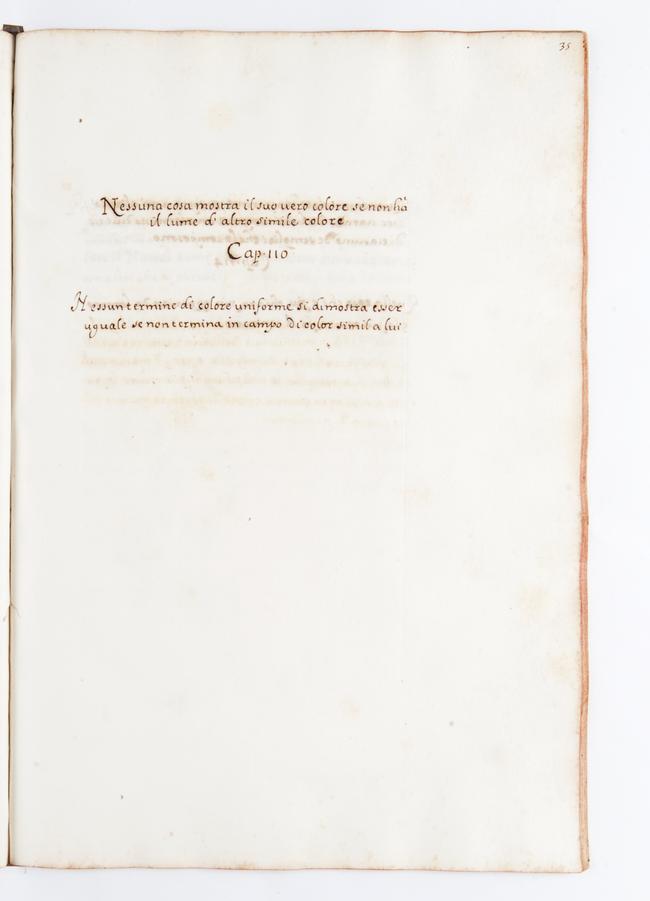 35
Nessuna cosa mostra il suo vero colore se non hà
il lume d' altro simile colore
Cap. 110
Nessun termine di colore uniforme si dimostra esser
uguale se non termina in campo di color simil a lui